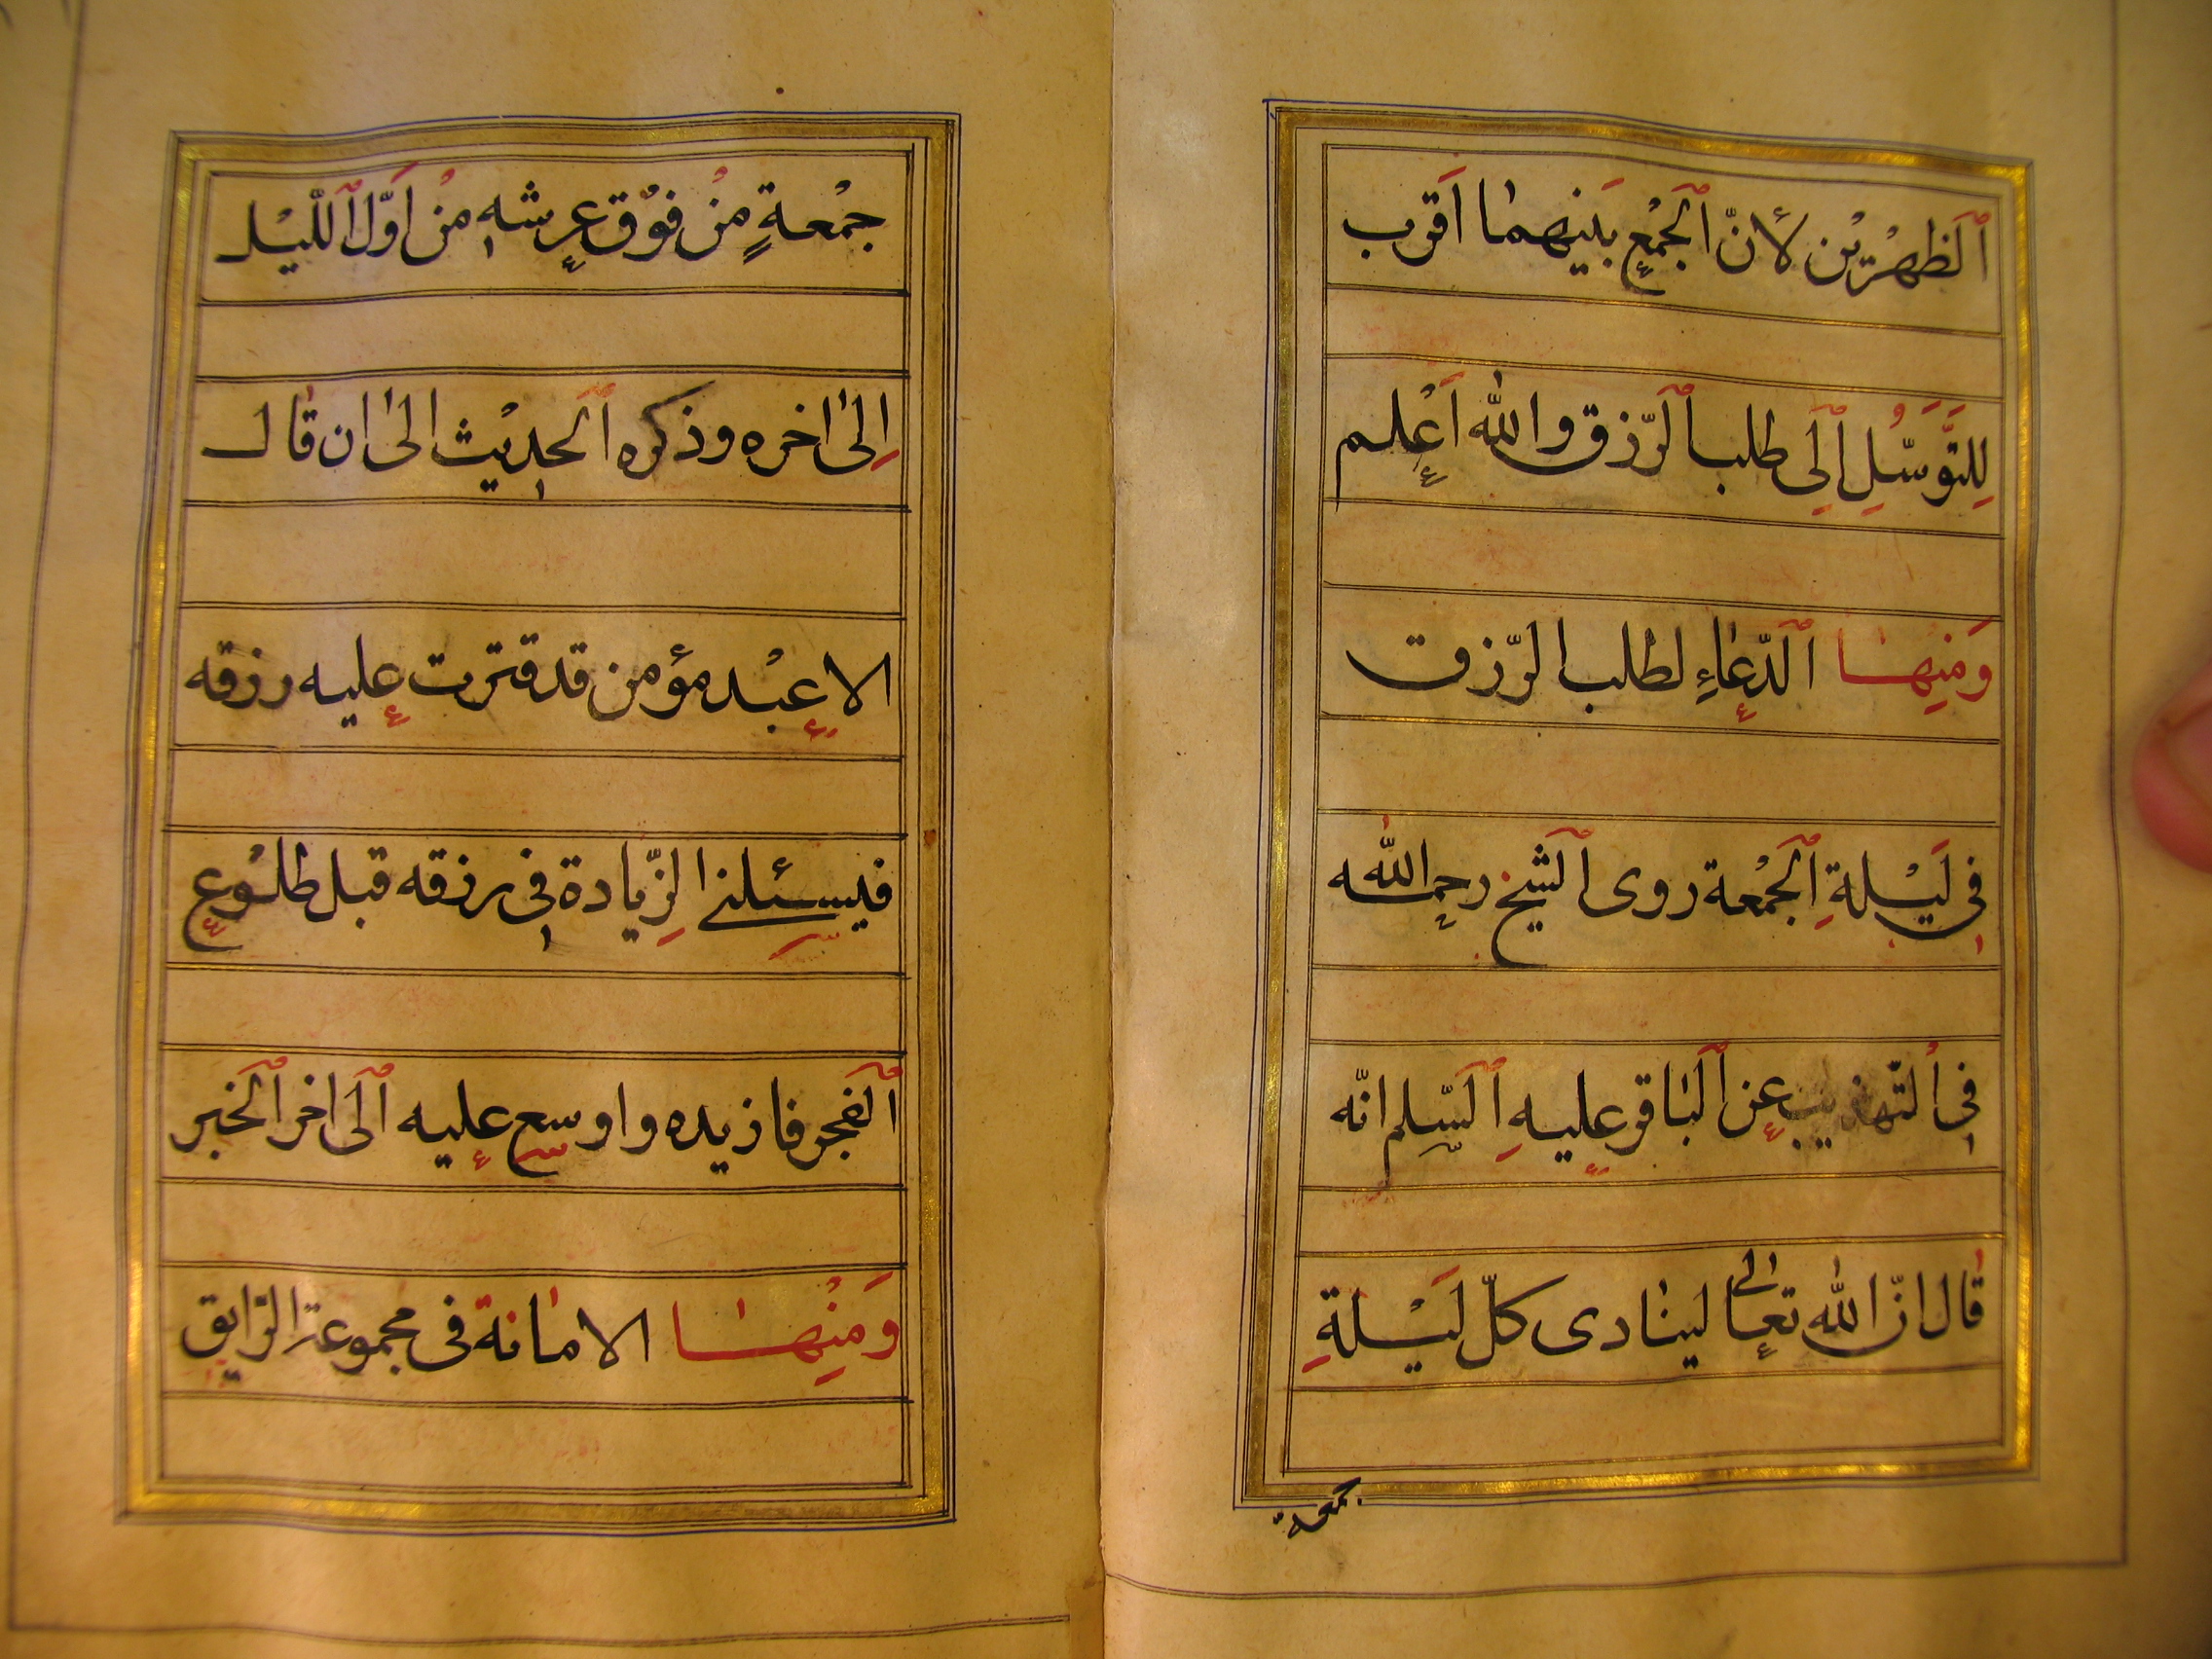 ٱلظهْريْن لأنّ ٱلجمْع بَينهما اَقرب
لِلتَّوَسُّلِ اِلَى طلب ٱلرّزق والله اَعْلم
وَمنِها ٱلدّعاءِ لطلب الرّزق
فى لَيْلةِ ٱلجمْعة روى ٱلشيخ رحمه الله
فى ٱلتّهذيب عن ٱلباقر عليهِ ٱلسّلم انّه
قال انّ الله تعالى لينادى كلّ لَيْلةِ
جمعة
جمْعةٍ منْ فوْق عرشه منْ اَوّل ٱللّيْل
اِلىٰ اخره وذكره ٱلحديْث الىٰ ان قال
الا عبْد مؤمن قد قترت عليه رزقه
فيسئلنى الزّيادة فى رزقه قبل طلوْع
ٱلفجر فازيده واوسع عليه اۤلَى اخر ٱلخبر
وَمنْها الامانة فى مجموعة الرّايق